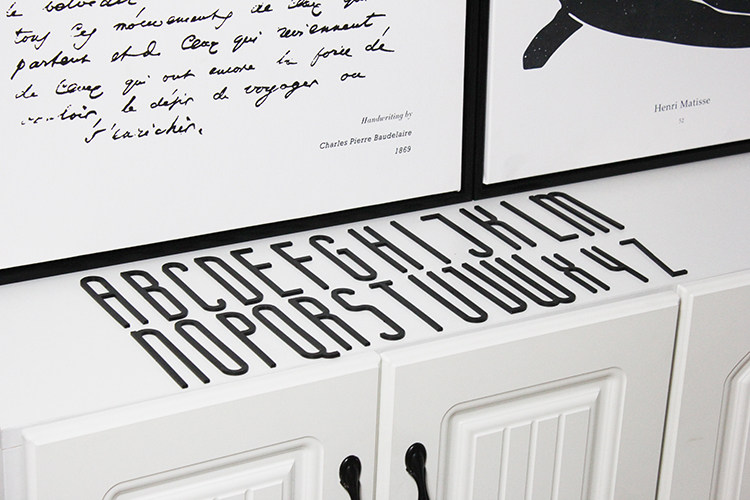 tous ces mouvements de ceux qui
partent et de ceux qui reviennent
de ceux qui ont encore la force de
vouloir, le désir de voyager ou
s'enrichir.
Handwriting by
Charles Pierre Baudelaire
1869
Henri Matisse
ABCDEFGHIJKLM
NOPQRSTUVWXYZ